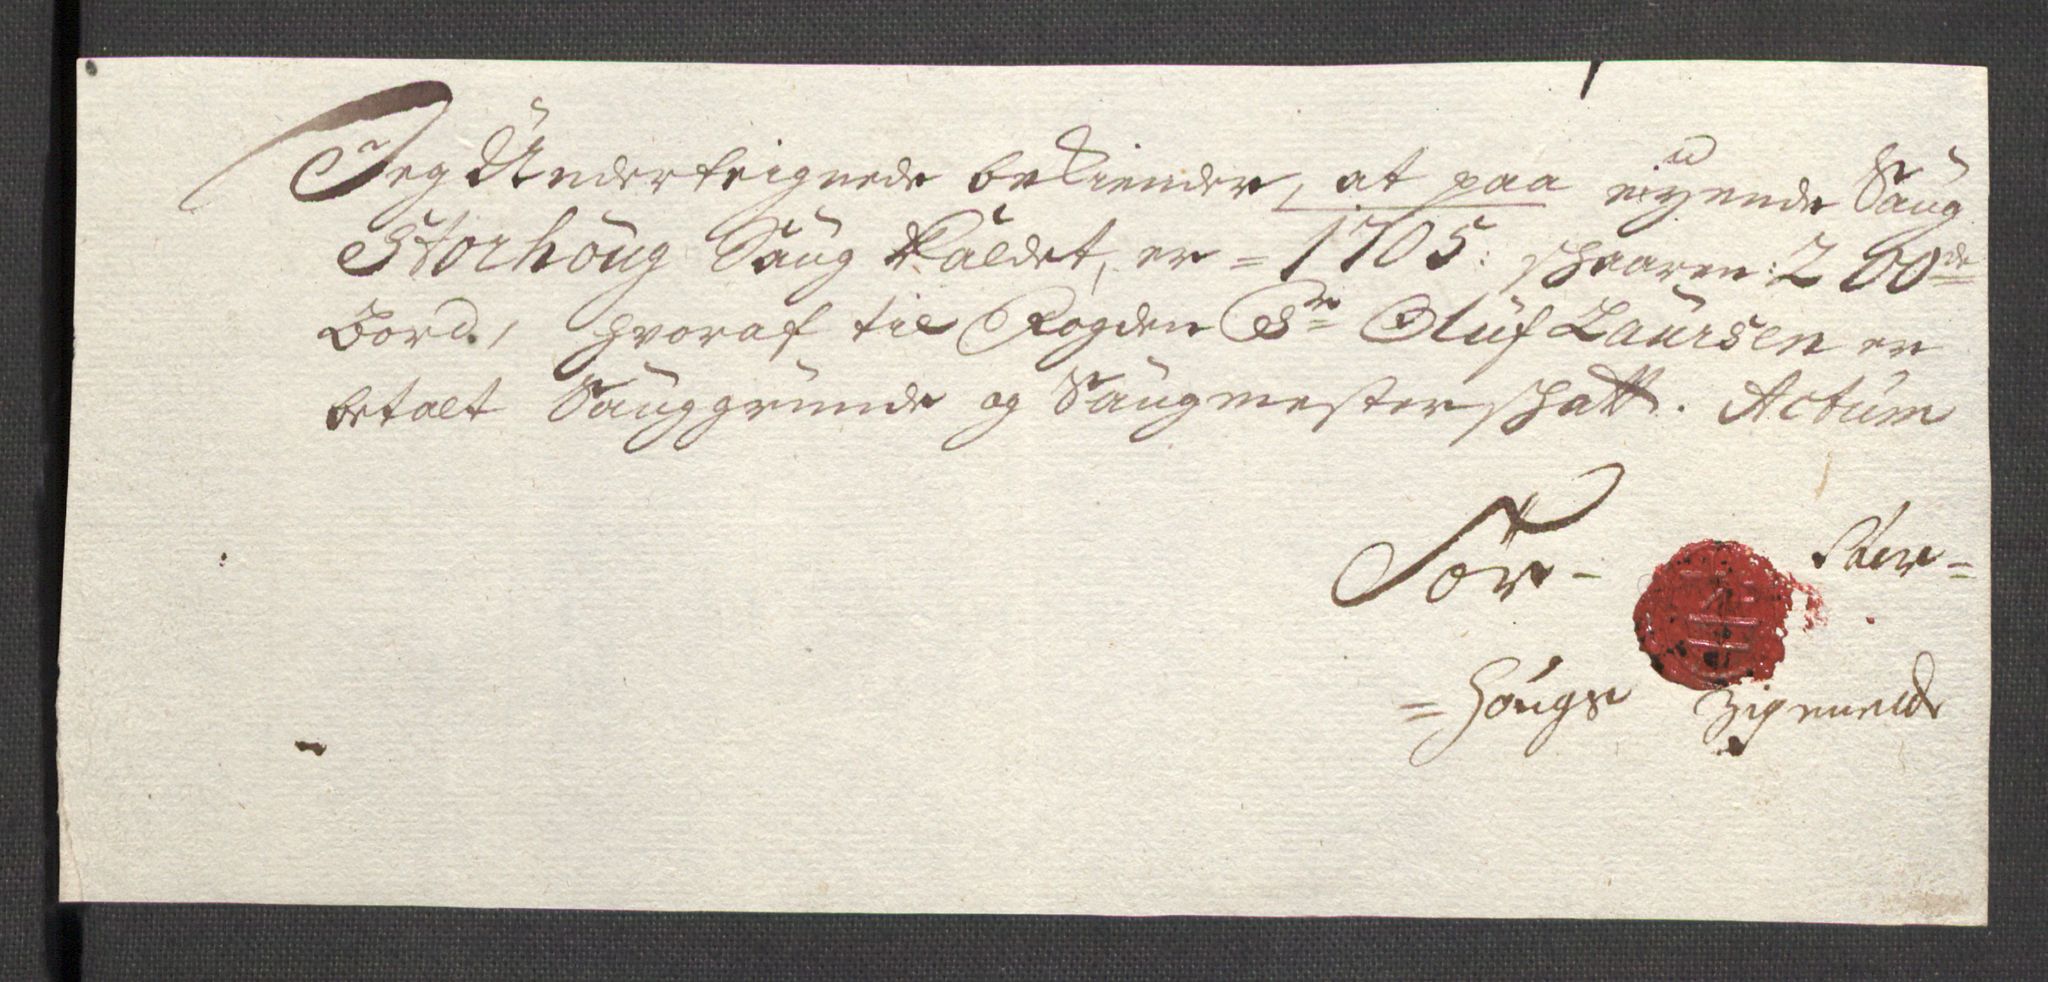 Jeg Underteignede bekiender, at paa eiyende Saug
Storhoug Saug kaldet, er = 1705: schaaren: 200de
Bord, hvoraf til Fogden Sr Oluf Laursen er
betalt Sauggrunde og Saugmester schatt. Actum
Tor- Stor=
=hougs